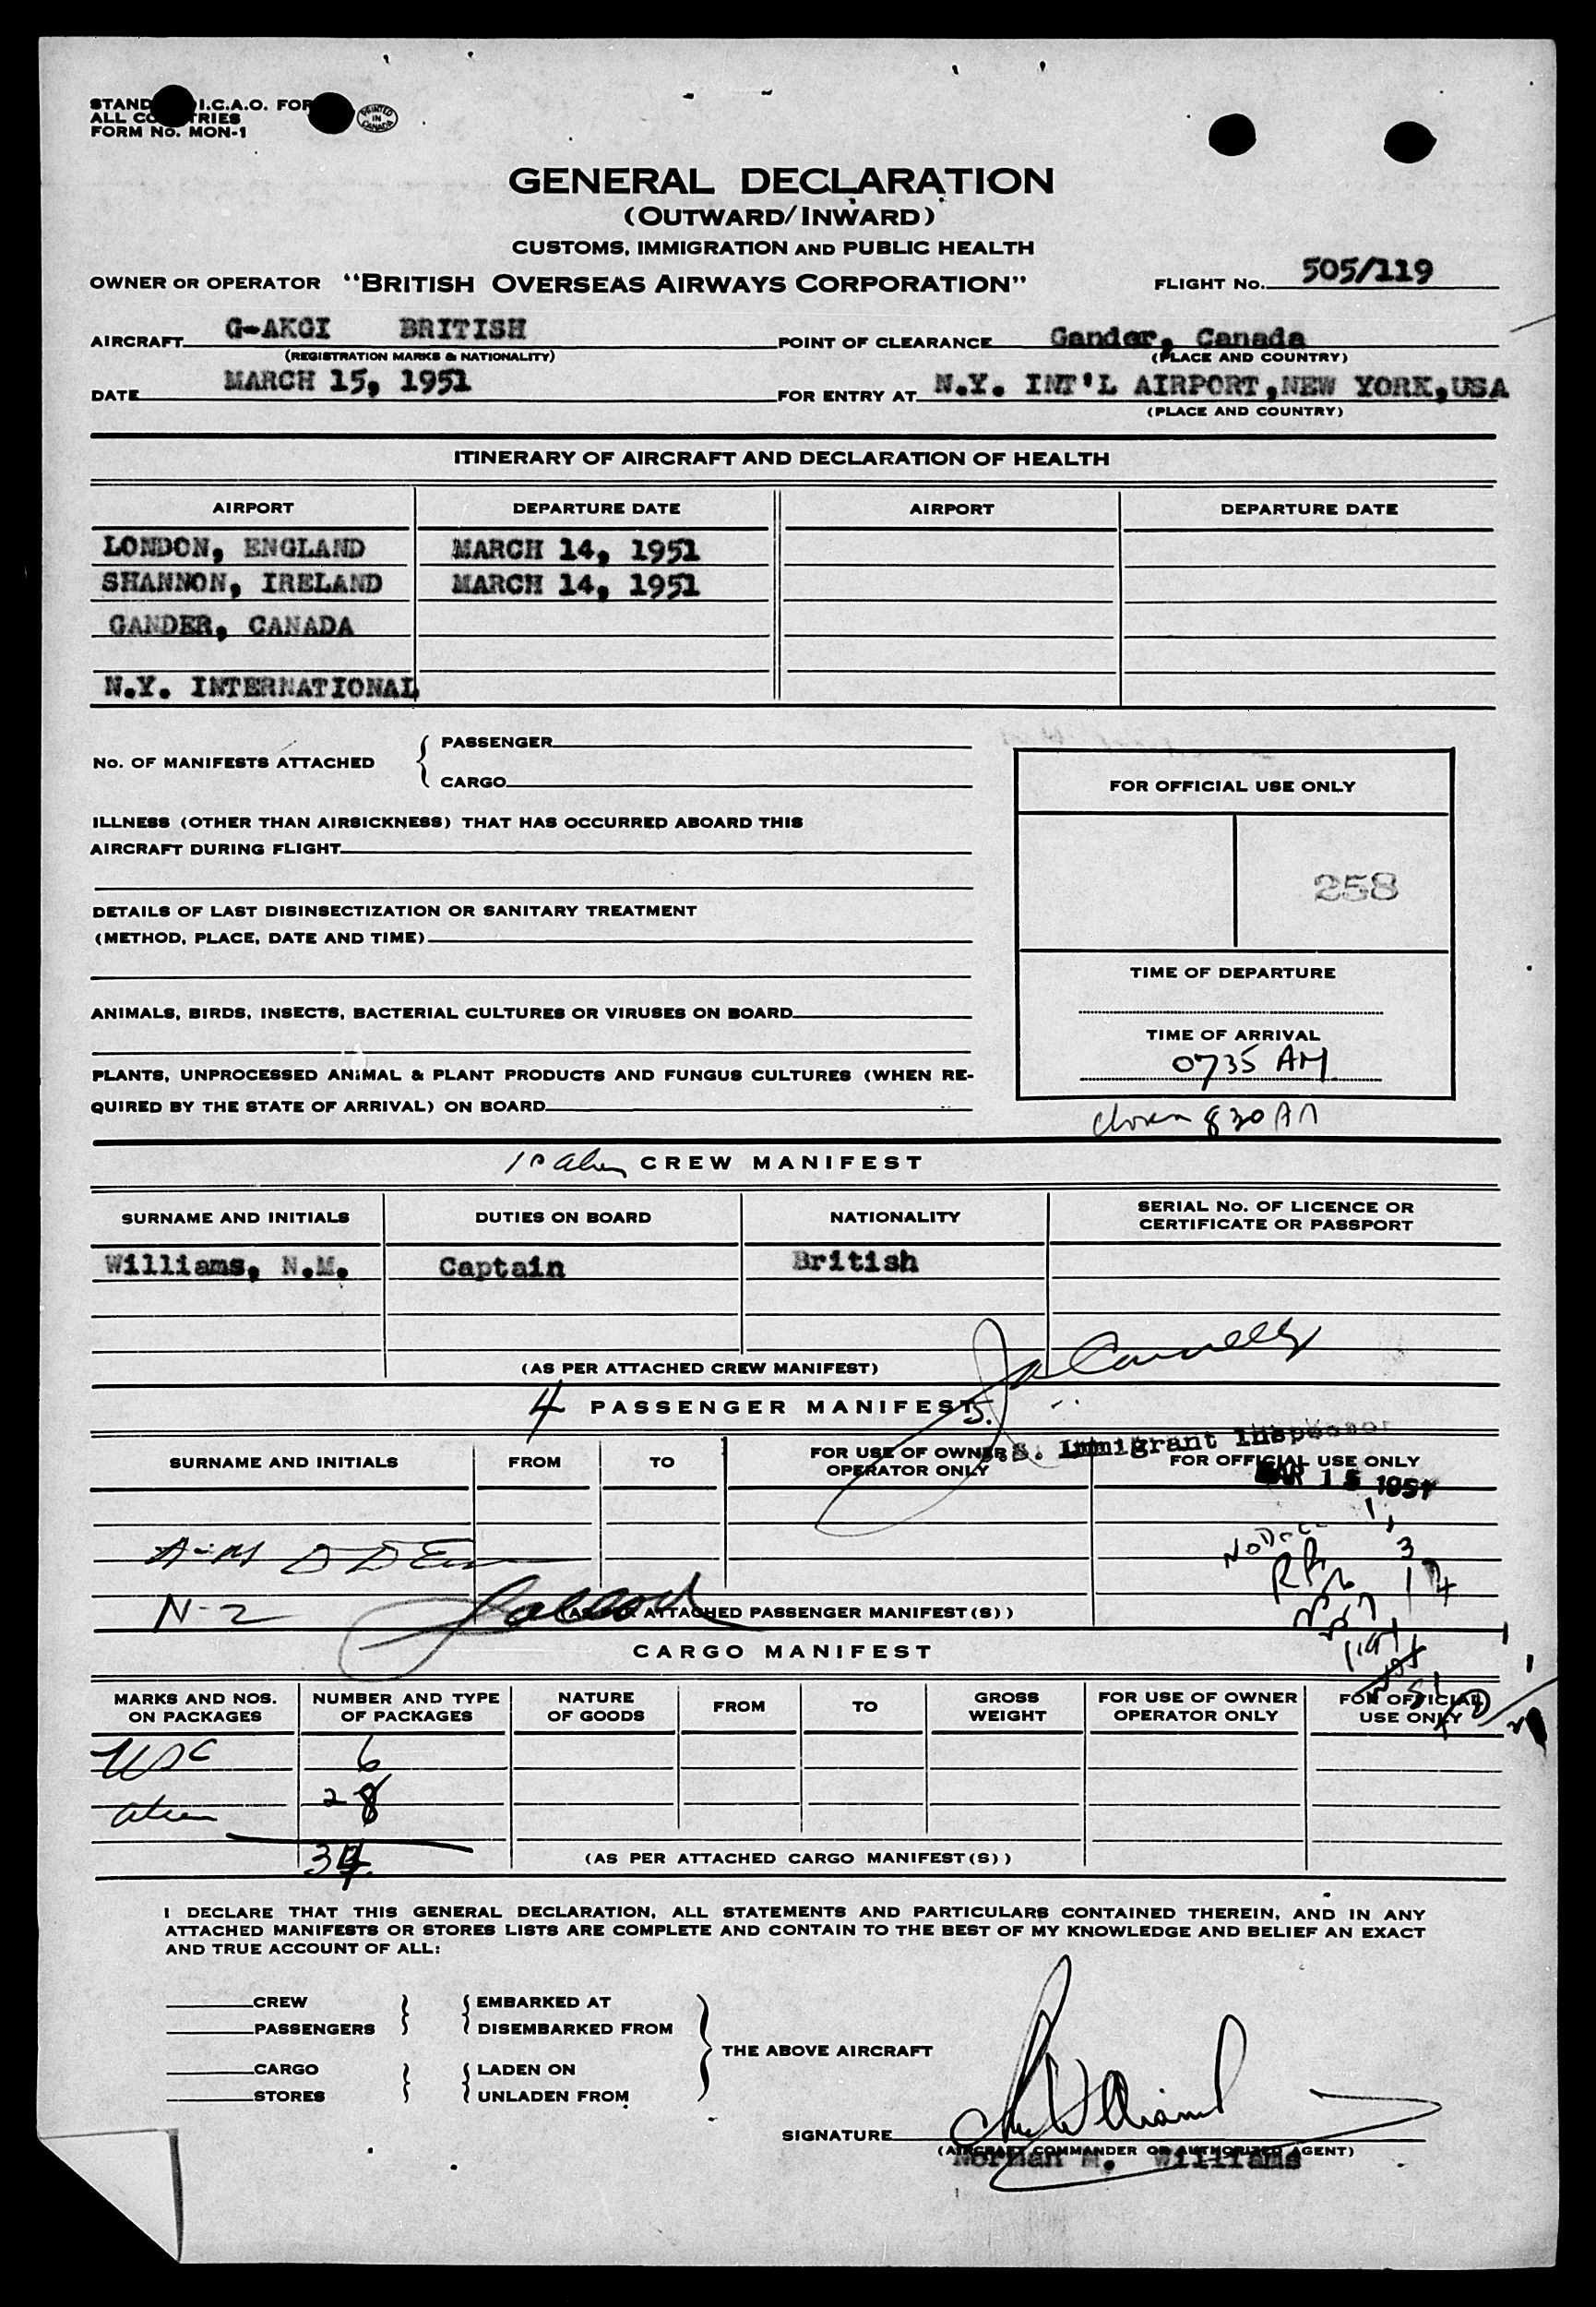 STAND I.C.A.O. FOR
ALL CO TRIES
FORM No. MON-1
PRINTED IN CANADA
GENERAL DECLARATION
(OUTWARD/INWARD)
CUSTOMS, IMMIGRATION AND PUBLIC HEALTH
OWNER OR OPERATOR "BRITISH OVERSEAS AIRWAYS CORPORATION" FLIGHT No. 505/119
AIRCRAFT G-AKGI BRITISH POINT OF CLEARANCE Gander, Canada
(REGISTRATION MARKS & NATIONALITY) (PLACE AND COUNTRY)
DATE MARCH 15, 1951 FOR ENTRY AT N.Y. INT'L AIRPORT,NEW YORK,USA
(PLACE AND COUNTRY)
ITINERARY OF AIRCRAFT AND DECLARATION OF HEALTH
AIRPORT DEPARTURE DATE AIRPORT DEPARTURE DATE
LONDON, ENGLAND MARCH 14, 1951
SHANNON, IRELAND MARCH 14, 1951
GANDER, CANADA
N.Y. INTERNATIONAL
No. OF MANIFESTS ATTACHED { PASSENGER
CARGO
FOR OFFICIAL USE ONLY
ILLNESS (OTHER THAN AIRSICKNESS) THAT HAS OCCURRED ABOARD THIS
AIRCRAFT DURING FLIGHT
258
DETAILS OF LAST DISINSECTIZATION OR SANITARY TREATMENT
(METHOD, PLACE, DATE AND TIME)
TIME OF DEPARTURE
ANIMALS, BIRDS, INSECTS, BACTERIAL CULTURES OR VIRUSES ON BOARD
TIME OF ARRIVAL
0735 AM
PLANTS, UNPROCESSED ANIMAL & PLANT PRODUCTS AND FUNGUS CULTURES (WHEN RE-
QUIRED BY THE STATE OF ARRIVAL) ON BOARD
830 AM
10 alien CREW MANIFEST
SURNAME AND INITIALS DUTIES ON BOARD NATIONALITY SERIAL No. OF LICENCE OR
CERTIFICATE OR PASSPORT
Williams, N.M. Captain British
(AS PER ATTACHED CREW MANIFEST)
4 PASSENGER MANIFESTS.
SURNAME AND INITIALS FROM TO FOR USE OF OWNER
OPERATOR ONLY
S. Immigrant Inspector
FOR OFFICIAL USE ONLY
MAR 15 1951
N-2
ATTACHED PASSENGER MANIFEST(S))
CARGO MANIFEST
MARKS AND NOS.
ON PACKAGES NUMBER AND TYPE
OF PACKAGES NATURE
OF GOODS FROM TO GROSS
WEIGHT FOR USE OF OWNER
OPERATOR ONLY FOR OFFICIAL
USE ONLY
USC 6
alien 28
34
(AS PER ATTACHED CARGO MANIFEST(S))
I DECLARE THAT THIS GENERAL DECLARATION, ALL STATEMENTS AND PARTICULARS CONTAINED THEREIN, AND IN ANY
ATTACHED MANIFESTS OR STORES LISTS ARE COMPLETE AND CONTAIN TO THE BEST OF MY KNOWLEDGE AND BELIEF AN EXACT
AND TRUE ACCOUNT OF ALL:
CREW } { EMBARKED AT
PASSENGERS } { DISEMBARKED FROM
THE ABOVE AIRCRAFT
CARGO } { LADEN ON
STORES } { UNLADEN FROM
SIGNATURE
(AIRCRAFT COMMANDER OR AUTHORIZED AGENT)
Norman M. Williams